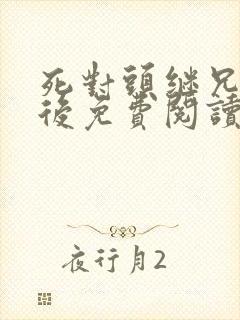 死對頭繼兄
後免費閱讀
夜行月2